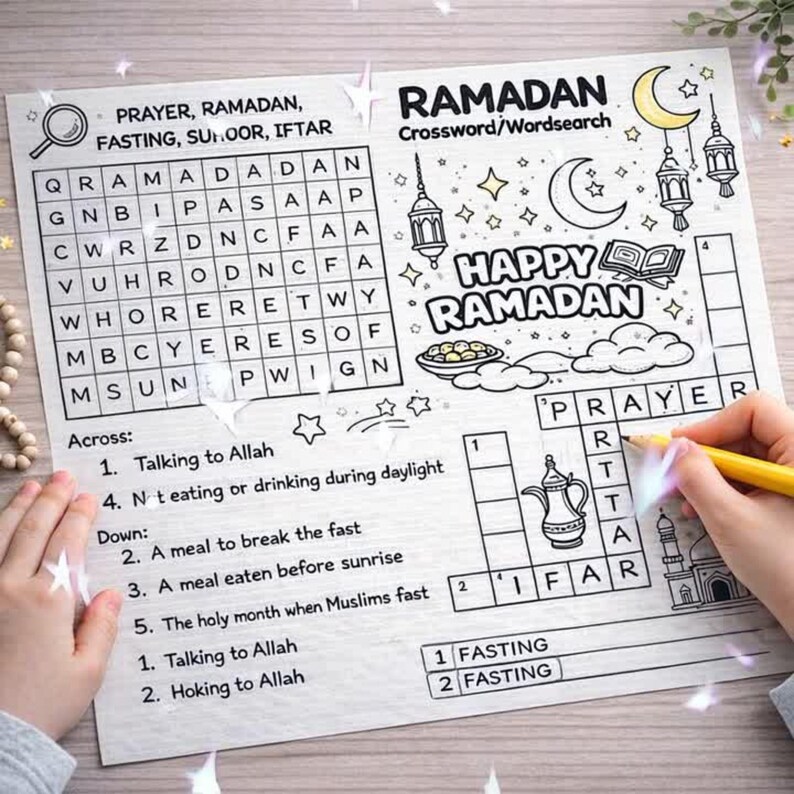 PRAYER, RAMADAN,
FASTING, SUHOOR, IFTAR
Q R A M A D A D A N
G N B I P A S A A P
C W R Z D N C F A A
V U H R O D N C F A
W H O R E R E T W Y
M B C Y E R E S O F
M S U N P W I G N
RAMADAN
Crossword/Wordsearch
HAPPY
RAMADAN
4
P R A Y E R
R
T
T
A
1
2 4 I F A R
Across:
1. Talking to Allah
4. Not eating or drinking during daylight
Down:
2. A meal to break the fast
3. A meal eaten before sunrise
5. The holy month when Muslims fast
1. Talking to Allah
2. Hoking to Allah
1 FASTING
2 FASTING